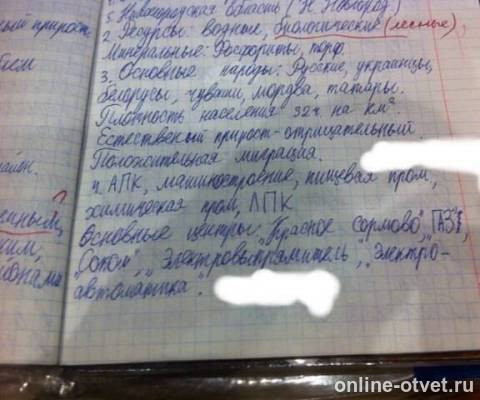 ный прирост
5. Нижегородская область (Н. Новгород)
2. Ресурсы: водные, биологические (лесные),
Минеральные: Фосфориты, торф.
3. Основные народы: Русские, украинцы,
беларусы, чуваши, мордва, татары.
Плотность населения 32ч. на км².
Естественый прирост - отрицательный.
Положительная миграция.
4. АПК, машиностроение, пищевая пром,
химическая пром, ЛПК
Основные центры: "Красное Сормово", ГАЗ",
"Сокол", "Электровыпрямитель", "Электро-
автоматика".
online-otvet.ru